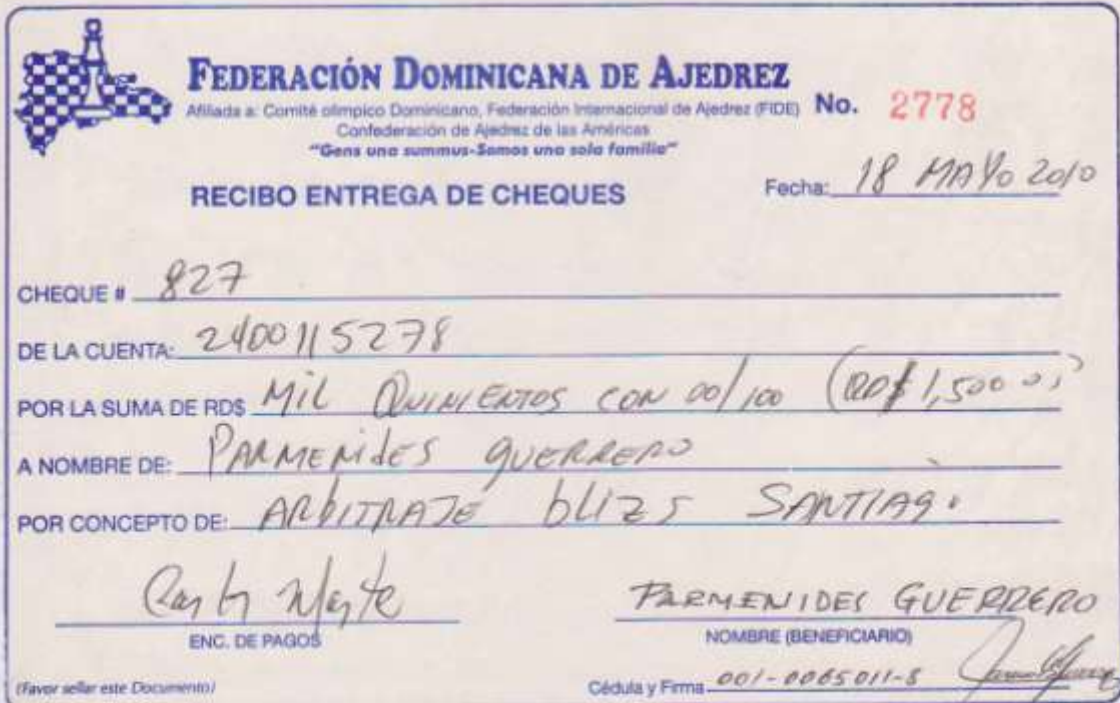 FEDERACIÓN DOMINICANA DE AJEDREZ
Afiliada a: Comité olímpico Dominicano, Federación Internacional de Ajedrez (FIDE) No. 2778
Confederación de Ajedrez de las Américas
"Gens una summus-Somos una sola familia"
RECIBO ENTREGA DE CHEQUES Fecha: 18 MAYO 2010
CHEQUE # 827
DE LA CUENTA: 2400115278
POR LA SUMA DE RD$ MIL QUINIENTOS CON 00/100 (RD$ 1,500
A NOMBRE DE: PARMENIDES GUERRERO
POR CONCEPTO DE: ARBITRAJE BLIZS SANTIAGO
PARMENIDES GUERRERO
ENC. DE PAGOS NOMBRE (BENEFICIARIO)
(Favor sellar este Documento) Cédula y Firma 001-0065011-8